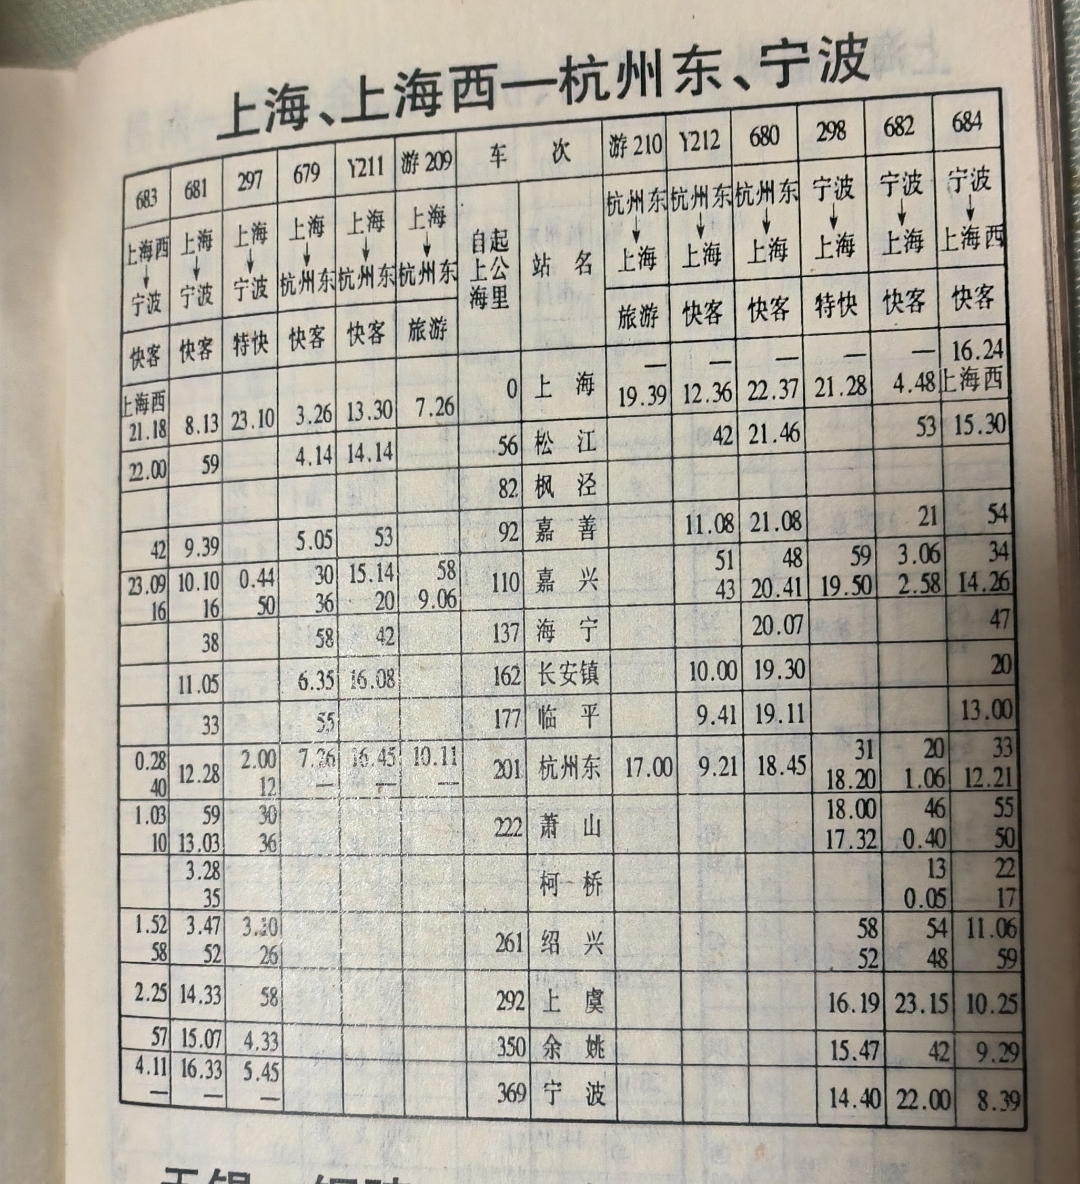 上海、上海西—杭州东、宁波
683 681 297 679 Y211 游209 车 次 游210 Y212 680 298 682 684
上海西↓宁波 上海↓宁波 上海↓宁波 上海↓杭州东 上海↓杭州东 上海↓杭州东 自起上公海里 站 名 杭州东↓上海 杭州东↓上海 杭州东↓上海 宁波↓上海 宁波↓上海 宁波↓上海西
快客 快客 特快 快客 快客 旅游 旅游 快客 快客 特快 快客 快客
— — — — — 16.24
上海西 0 上 海 上海西
21.18 8.13 23.10 3.26 13.30 7.26 19.39 12.36 22.37 21.28 4.48
22.00 59 4.14 14.14 56 松 江 42 21.46 53 15.30
82 枫 泾
42 9.39 5.05 53 92 嘉 善 11.08 21.08 21 54
23.09 10.10 0.44 30 15.14 58 110 嘉 兴 51 48 59 3.06 34
16 16 50 36 20 9.06 43 20.41 19.50 2.58 14.26
38 58 42 137 海 宁 20.07 47
11.05 6.35 16.08 162 长安镇 10.00 19.30 20
33 55 177 临 平 9.41 19.11 13.00
0.28 12.28 2.00 7.26 16.45 10.11 201 杭州东 17.00 9.21 18.45 31 20 33
40 12 — — — 18.20 1.06 12.21
1.03 59 30 222 萧 山 18.00 46 55
10 13.03 36 17.32 0.40 50
3.28 柯 桥 13 22
35 0.05 17
1.52 3.47 3.20 261 绍 兴 58 54 11.06
58 52 26 52 48 59
2.25 14.33 58 292 上 虞 16.19 23.15 10.25
57 15.07 4.33 350 余 姚 15.47 42 9.29
4.11 16.33 5.45 369 宁 波 14.40 22.00 8.39
— — —